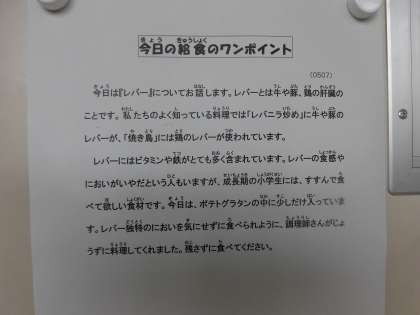 今日の給食のワンポイント
(0507)
今日は『レバー』についてお話します。レバーとは牛や豚、鶏の肝臓の
ことです。私たちのよく知っている料理では「レバニラ炒め」に牛や豚の
レバーが、「焼き鳥」には鶏のレバーが使われています。
レバーにはビタミンや鉄がとても多く含まれています。レバーの食感や
においがいやだという人もいますが、成長期の小学生には、すすんで食
べて欲しい食材です。今日は、ポテトグラタンの中に少しだけ入っていま
す。レバー独特のにおいを気にせずに食べられように、調理師さんがじょ
うずに料理してくれました。残さずに食べてください。